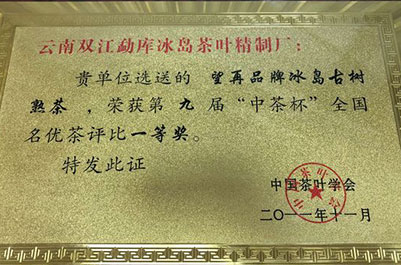 云南双江勐库冰岛茶叶精制厂：
贵单位选送的 望再品牌冰岛古树
熟茶，荣获第 九 届“中茶杯”全国
名优茶评比一等奖。
特发此证
中国茶叶学会
二〇一一年十一月
中国茶叶学会